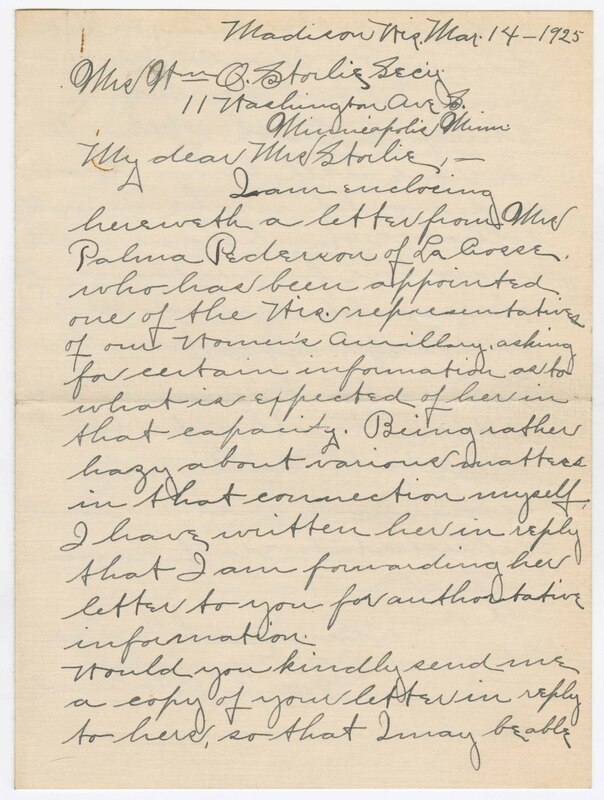 Madison Wis. Mar. 14 - 1925
Mrs Wm O. Storlie, Secy.
11 Washington Ave S.
Minneapolis Minn.
My dear Mrs Storlie, —
I am enclosing
herewith a letter from Mrs
Palma Pederson of La Crosse,
who has been appointed
one of the Wis. representatives
of our Women's Auxillary, asking
for certain information as to
what is expected of her in
that capacity. Being rather
hazy about various matters
in that connection myself,
I have written her in reply
that I am forwarding her
letter to you for authoritative
information.
Would you kindly send me
a copy of your letter in reply
to hers, so that I may be able